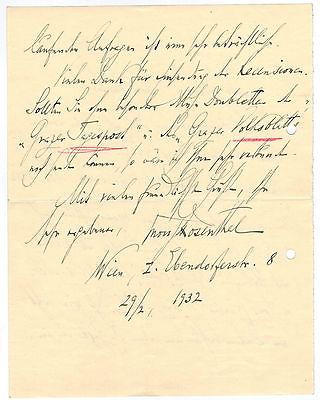 laufenden Anfragen ist eine sehr beträchtliche.
Vielen Dank für Einsendung der Recensionen.
Sollten Sie ohne besondere Mühe Doubletten der
"Grazer Tagespost" u. des "Grazer Volksblatt"
noch senden können, so wäre ich Ihnen sehr verbunden.
Mit vielen freundlichen Grüßen, Ihr
sehr ergebener, Rosenthal
Wien, I. Ebendorferstr. 8
29/2, 1932